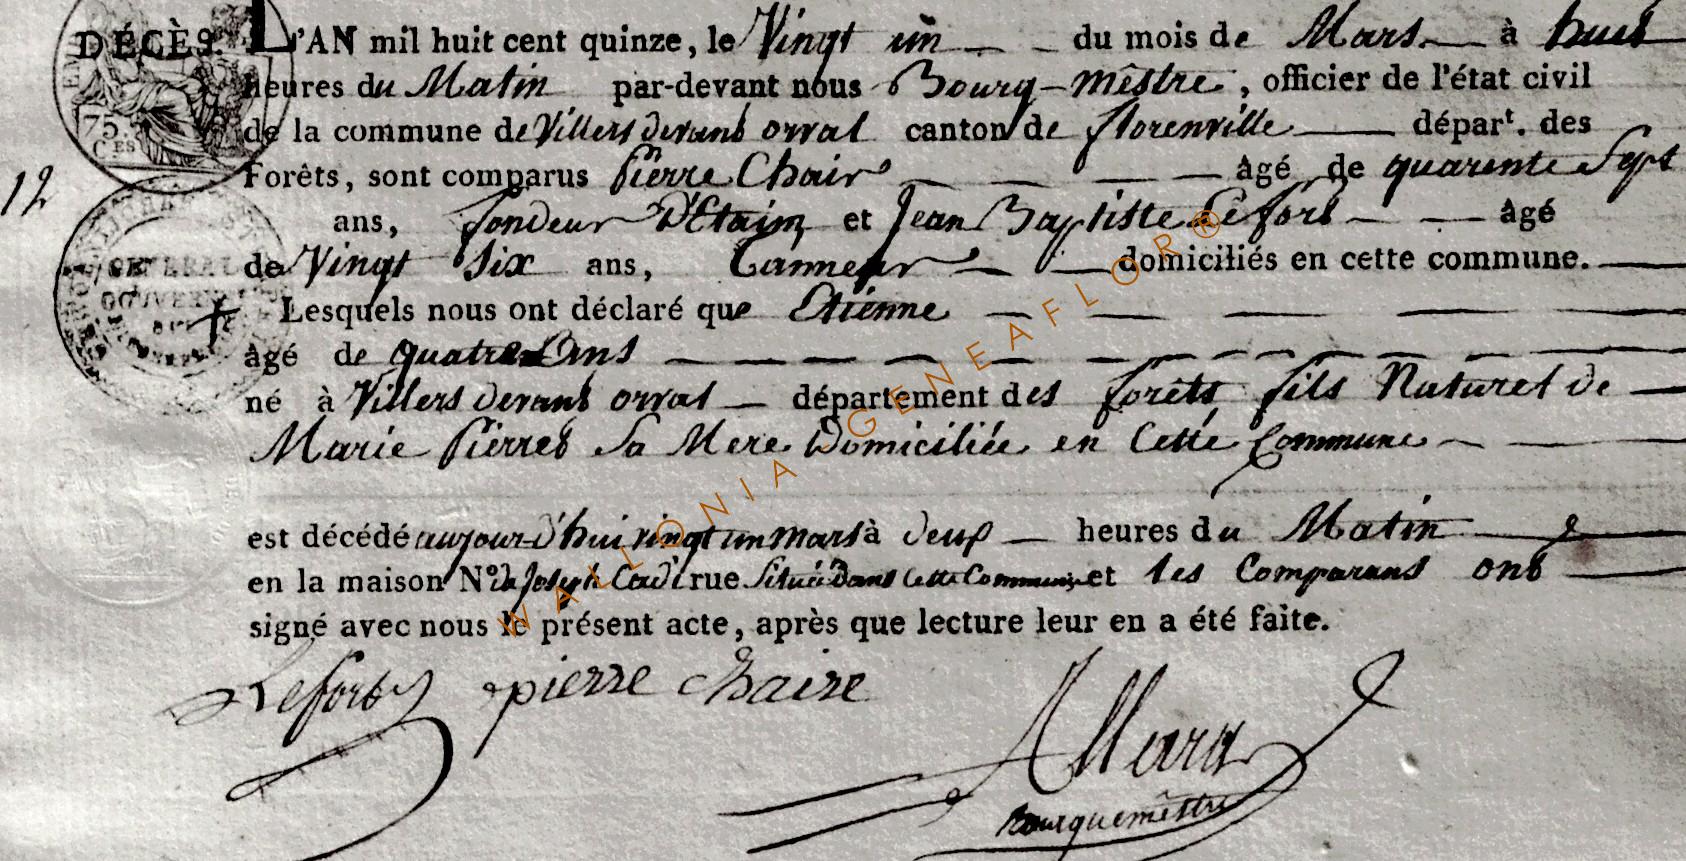 DÉCÈS. L'AN mil huit cent quinze, le Vingt un du mois de Mars à huit
heures du Matin par-devant nous Bourg-mêstre, officier de l'état civil
de la commune de Villers devant orval canton de florenville départ. des
Forêts, sont comparus Pierre Chair âgé de quarente Sept
12
ans, fondeur D'Etaim et Jean Baptiste Lefort âgé
de Vingt Six ans, Tanneur domiciliés en cette commune.
Lesquels nous ont déclaré que Etienne
âgé de quatre Ans
né à Villers devant orval département des forêts fils Naturel de
Marie Pierret Sa Mere Domiciliée en Cette Commune
est décédé aujourd'hui vingt un mars à deux heures du Matin
en la maison N° de Joseph rue Située Dans Cette Commune et les Comparans ont
signé avec nous le présent acte, après que lecture leur en a été faite.
Lefort pierre chaire
Allard
Bourguemêstre
75.
C.ES
WALLONIA GENEAFLOR®